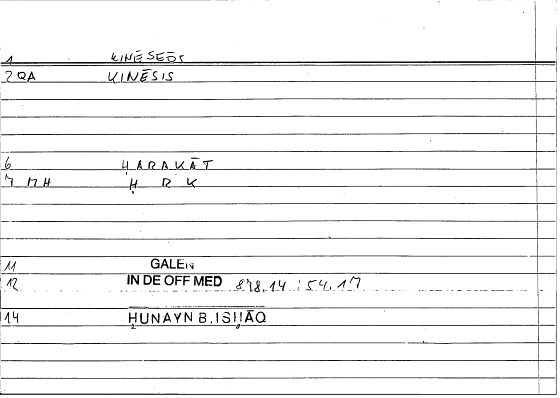 1 KINĒSEŌS
2 QA KINĒSIS
6 ḤARAKĀT
7 MH Ḥ R K
11 GALEN
12 IN DE OFF MED 878,14 : 54,17
14 ḤUNAYN B. ISḤĀQ